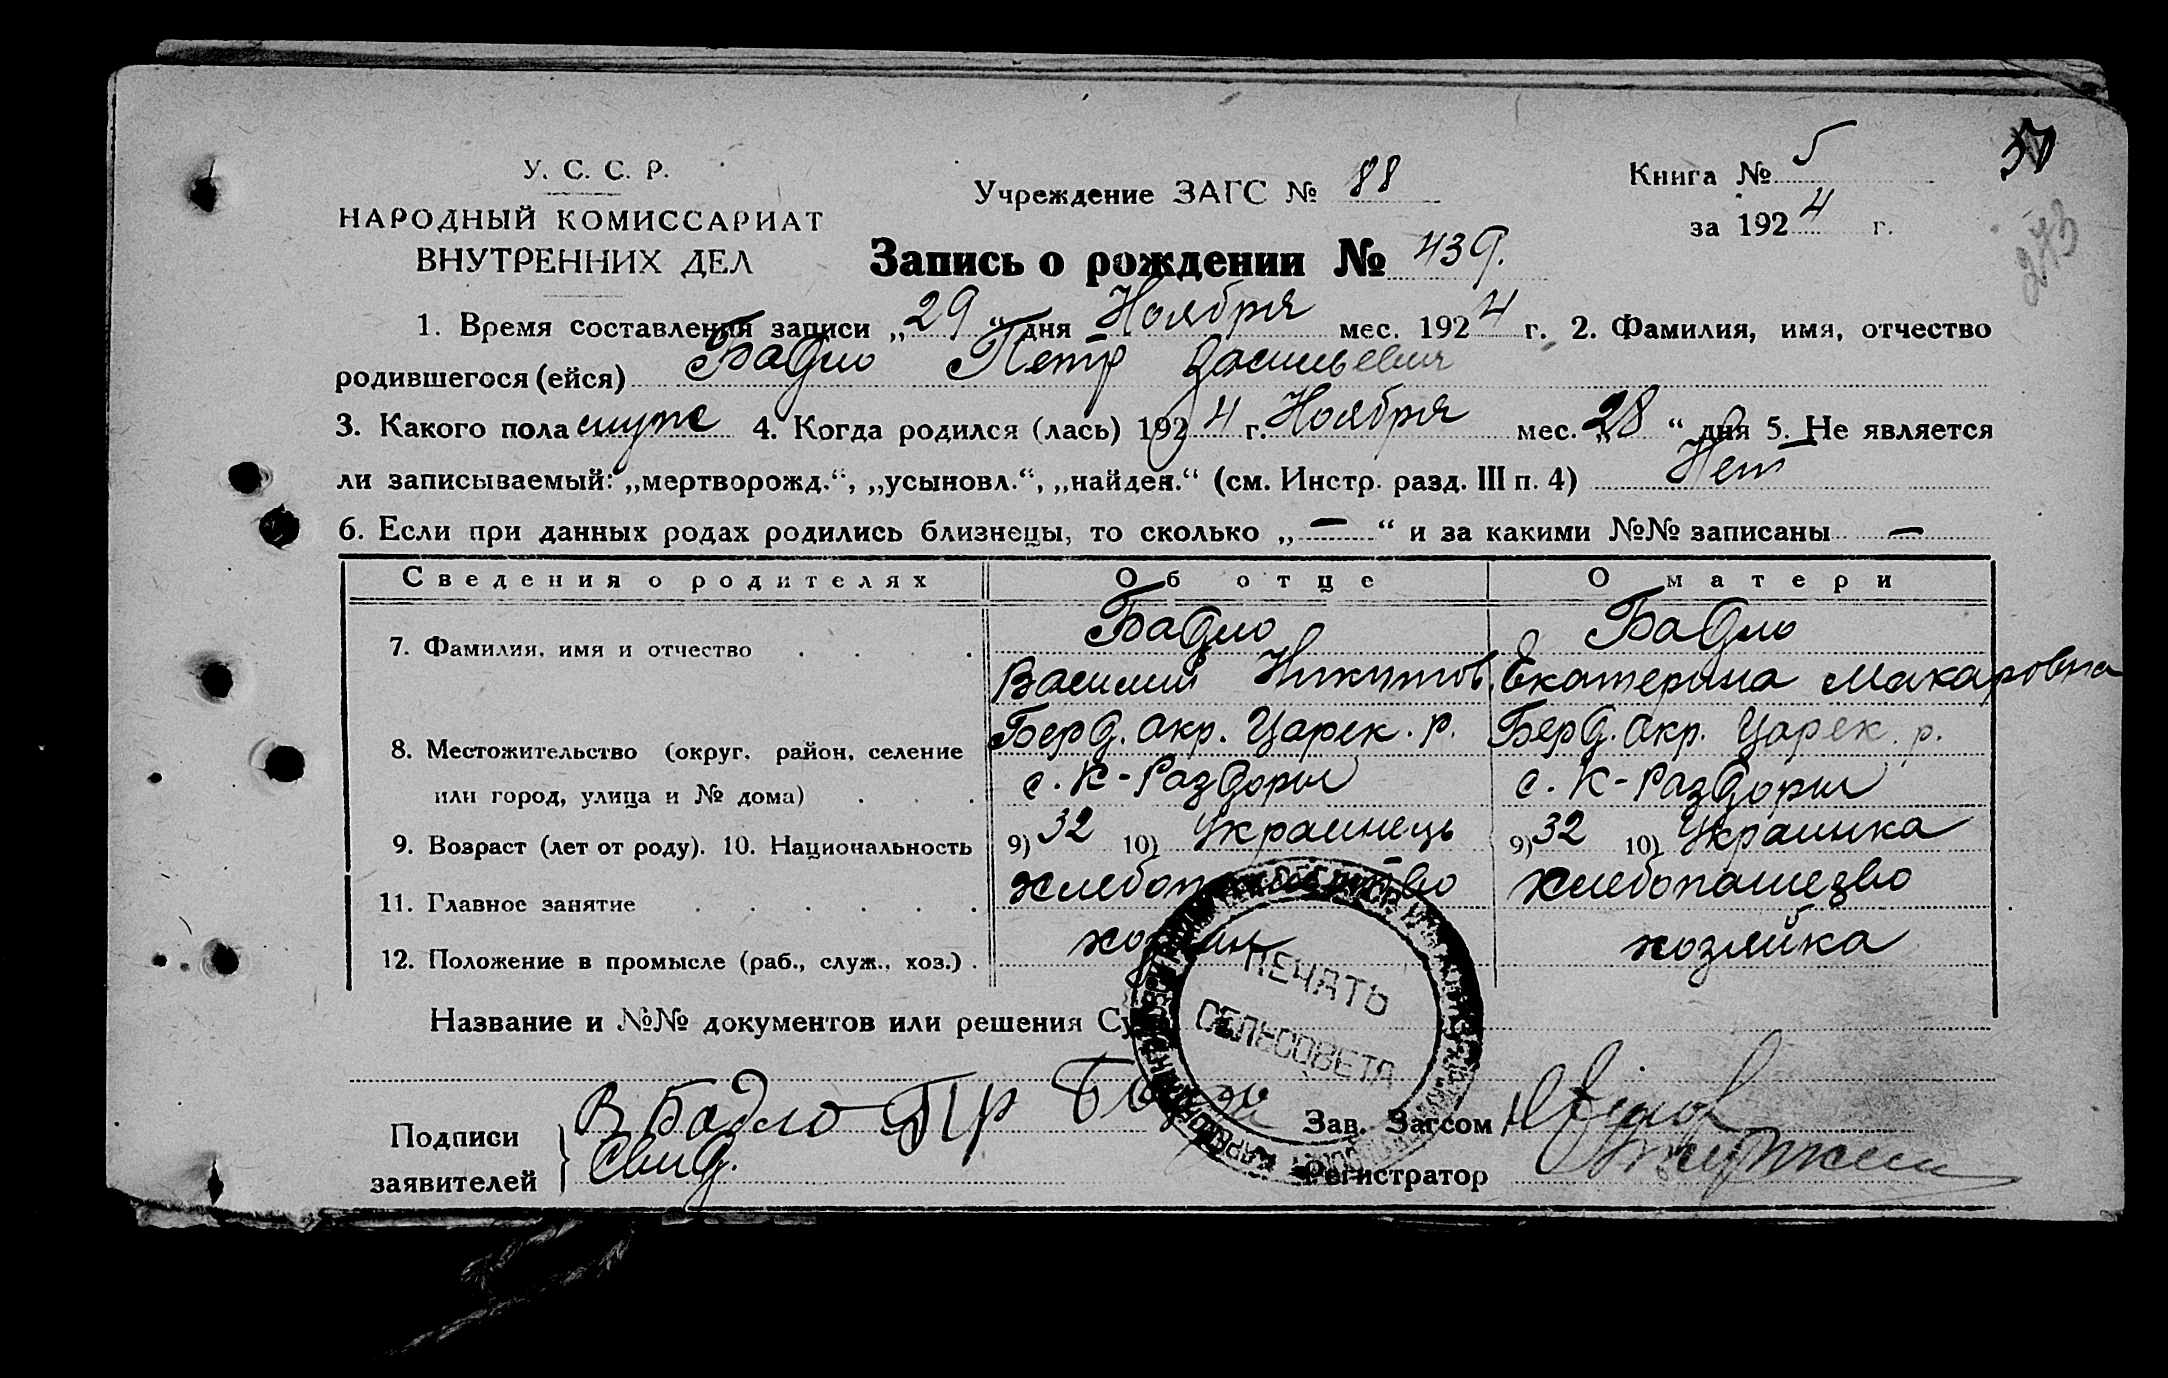 У. С. С. Р.
НАРОДНЫЙ КОМИССАРИАТ
ВНУТРЕННИХ ДЕЛ
Учреждение ЗАГС № 88
Книга № 5
за 1924 г.
273
Запись о рождении № 439.
1. Время составления записи „29“ дня Ноября мес. 1924 г. 2. Фамилия, имя, отчество
родившегося (ейся) Бадло Петр Васильевич
3. Какого пола муже 4. Когда родился (лась) 1924 г. Ноября мес. „28“ дня 5. Не является
ли записываемый: „мертворожд.“, „усыновл.“, „найден.“ (см. Инстр. разд. III п. 4) Нет
6. Если при данных родах родились близнецы, то сколько „—“ и за какими №№ записаны —
Сведения о родителях Об отце О матери
7. Фамилия, имя и отчество Бадло Бадло
Василий Никитов. Екатерина Макаровна
8. Местожительство (округ, район, селение Берд. окр. Царек. р. Берд. окр. Царек. р.
или город, улица и № дома) с. К-Раздоры с. К-Раздоры
9. Возраст (лет от роду). 10. Национальность 9) 32 10) Украинець 9) 32 10) Украинка
11. Главное занятие хлебопашество хлебопашезво
12. Положение в промысле (раб., служ., хоз.) хозяин хозяйка
Название и №№ документов или решения Су
ПЕЧАТЬ
СЕЛЬСОВЕТА
Подписи
заявителей
В Бадло
Свид.
Зав. Загсом
Регистратор